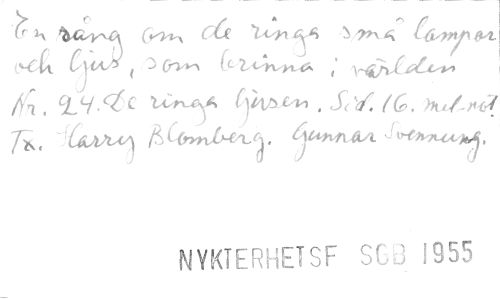 En sång om de ringa små lampor
och ljus, som brinna i världen
Nr. 24. De ringa ljusen. Sid. 16. mel-not.
Tx. Harry Blomberg. Gunnar Svennung.
NYKTERHETSF SGB 1955